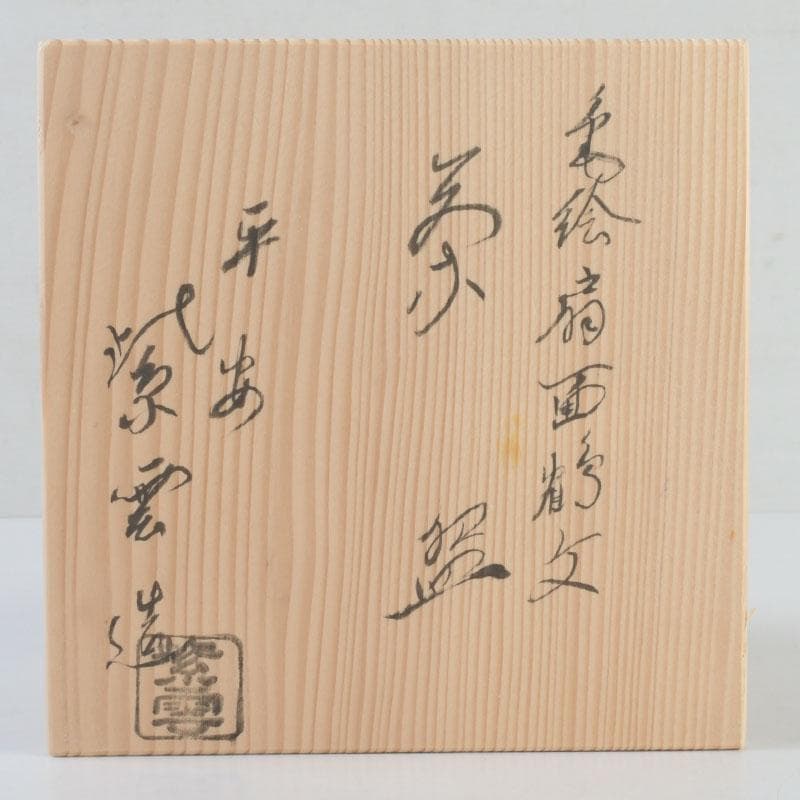 色絵扇面鶴文
茶盌
平安
紫雲造
紫雲